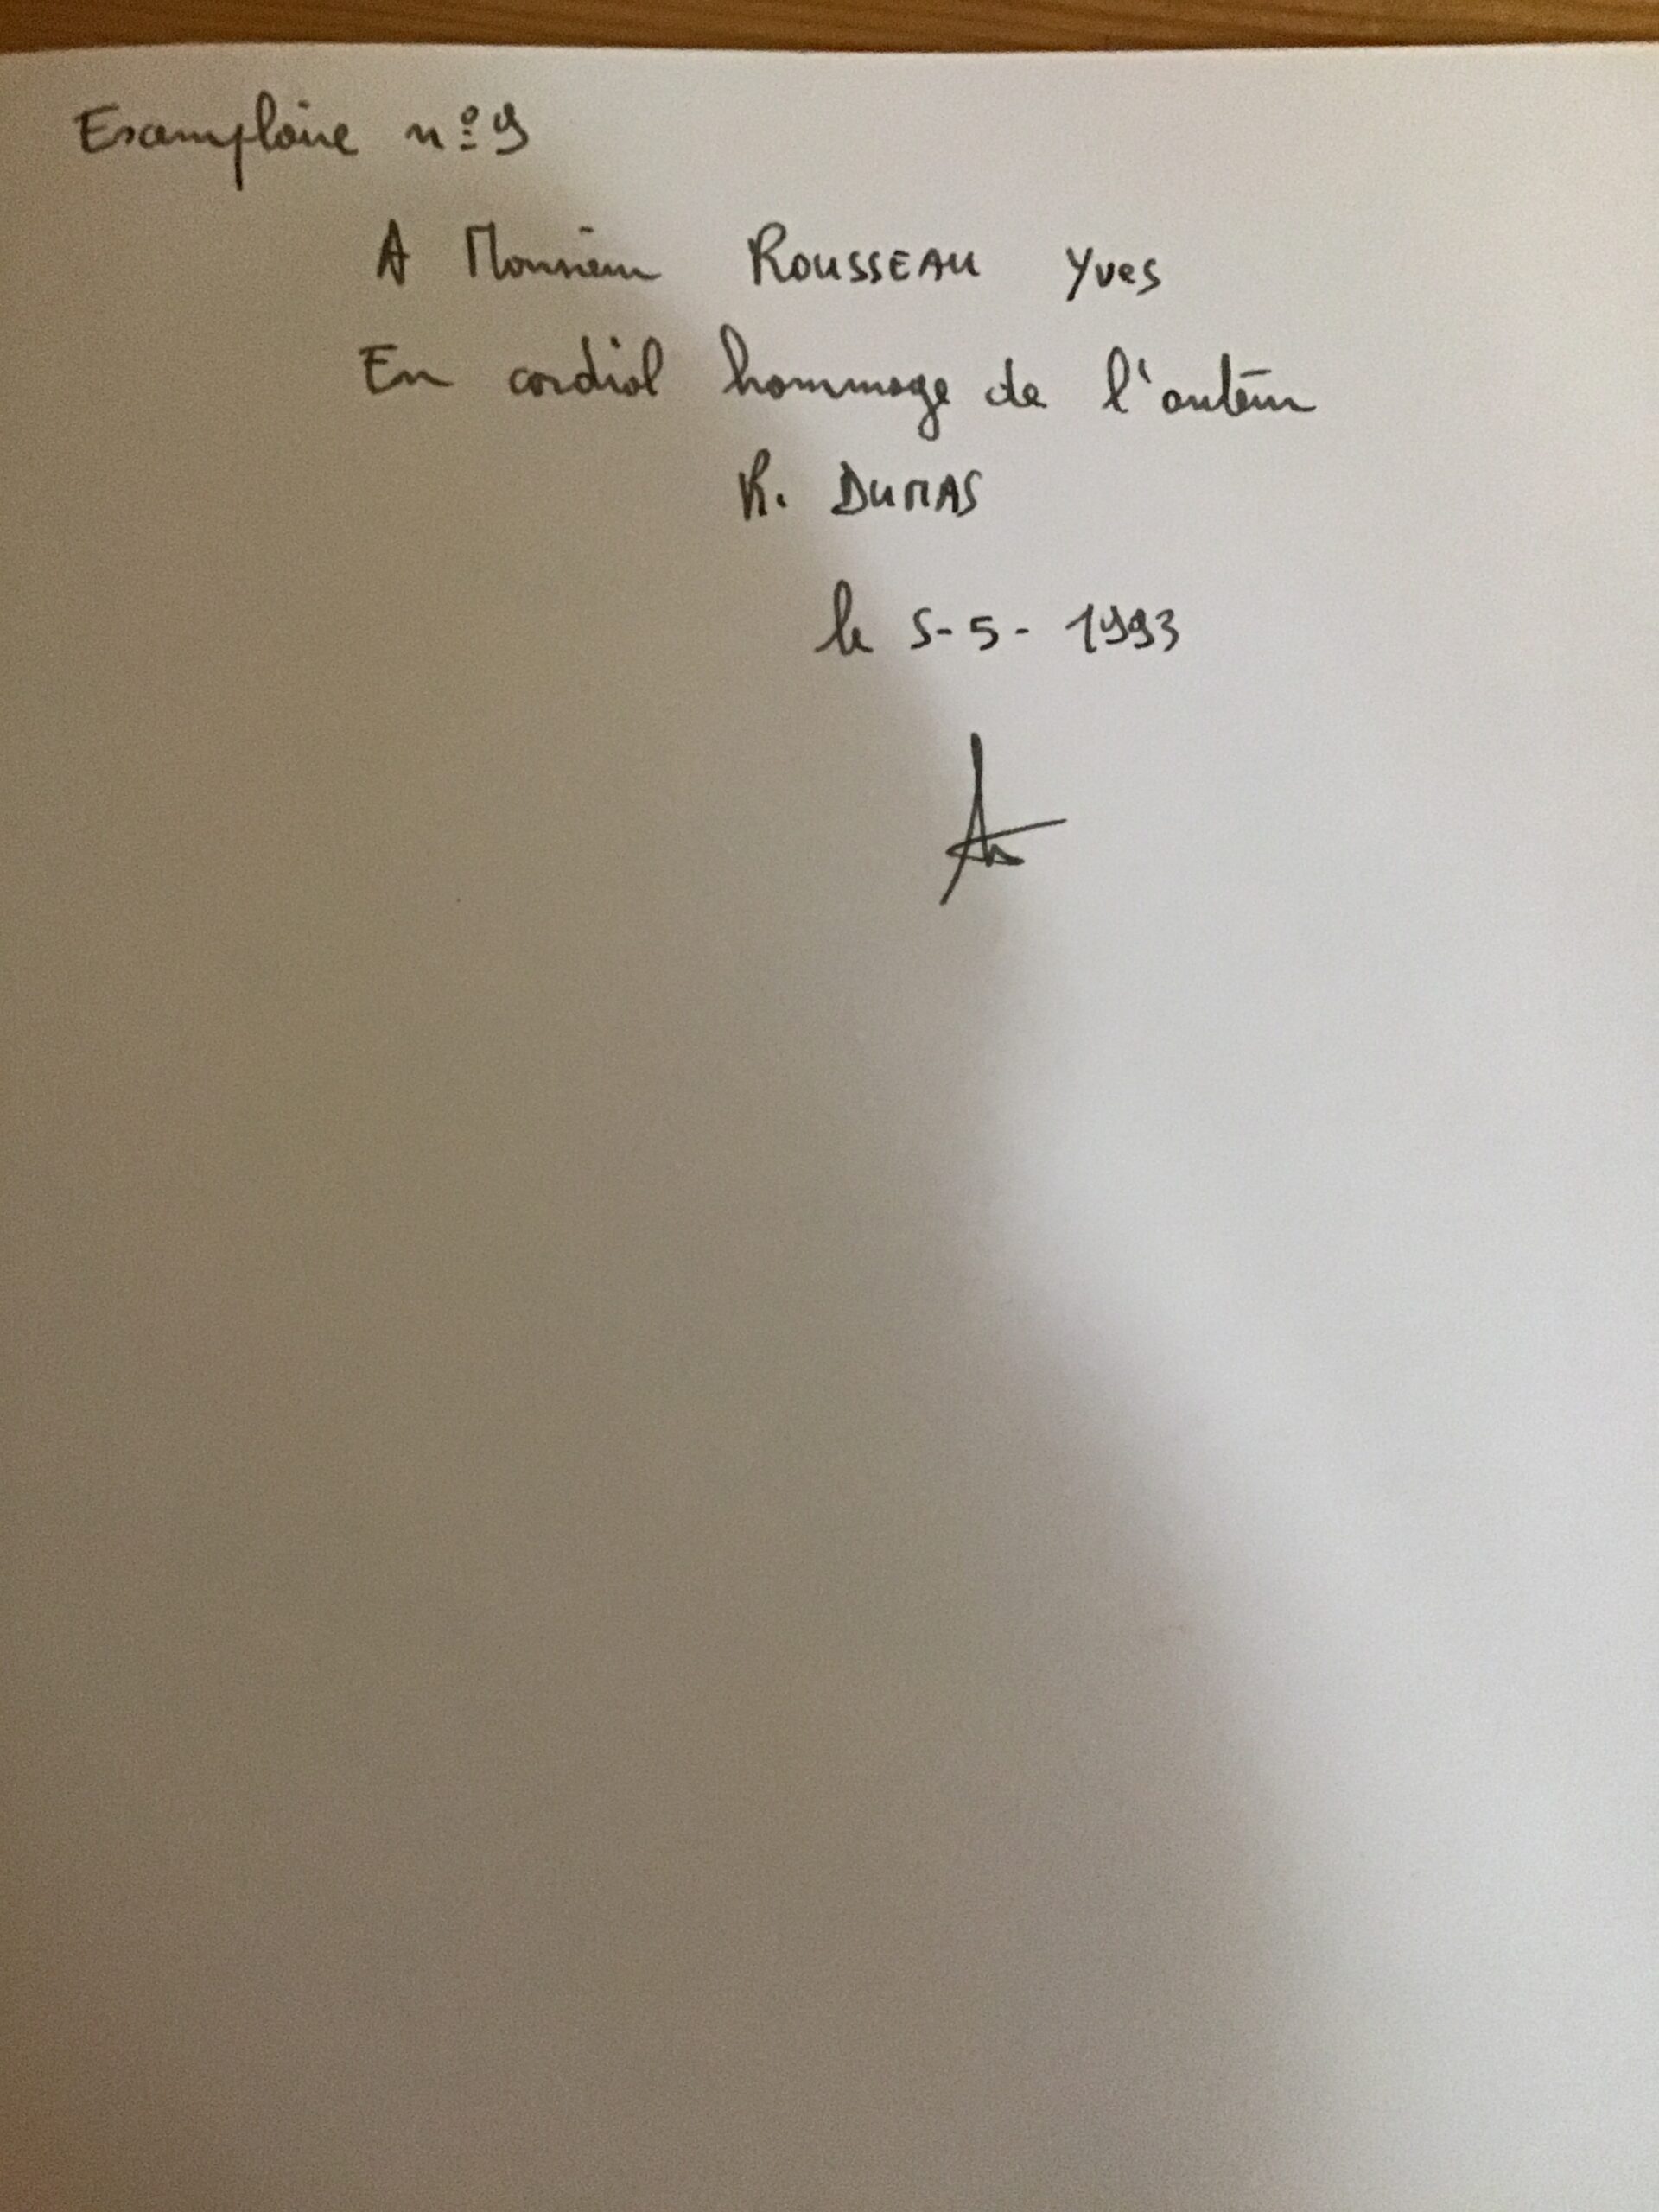 Examplaire n° 9
A Monsieur ROUSSEAU Yves
En cordial hommage de l'auteur
R. DUMAS
le 5-5-1993